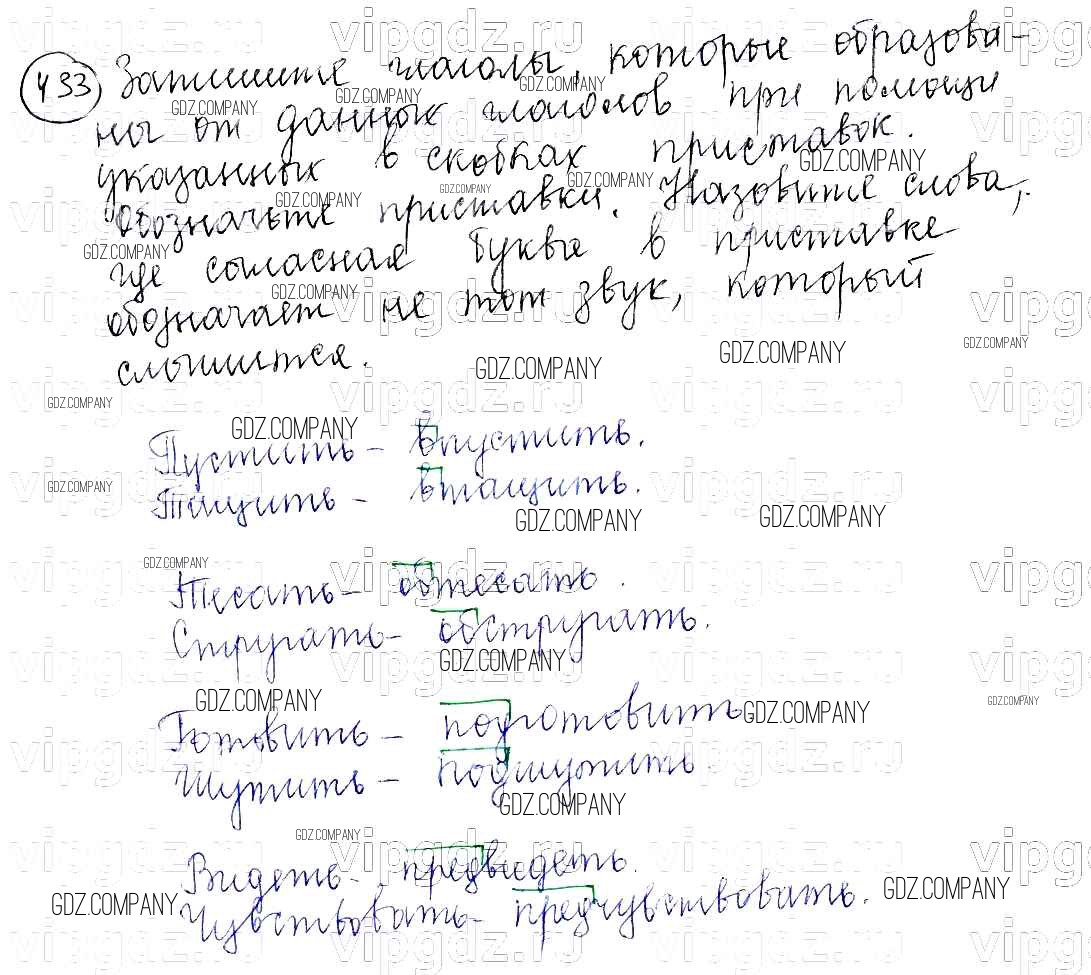 433 Запишите глаголы, которые образова-
ны от данных глаголов при помощи
указанных в скобках приставок.
Обозначьте приставки. Назовите слова,
где согласная буква в приставке
обозначает не тот звук, который
слышится.
Пустить - впустить.
Тащить - втащить.
Тесать - обтесать.
Стругать - обстругать.
Готовить - подготовить.
Шутить - подшутить.
Видеть - предвидеть.
Чувствовать - предчувствовать.